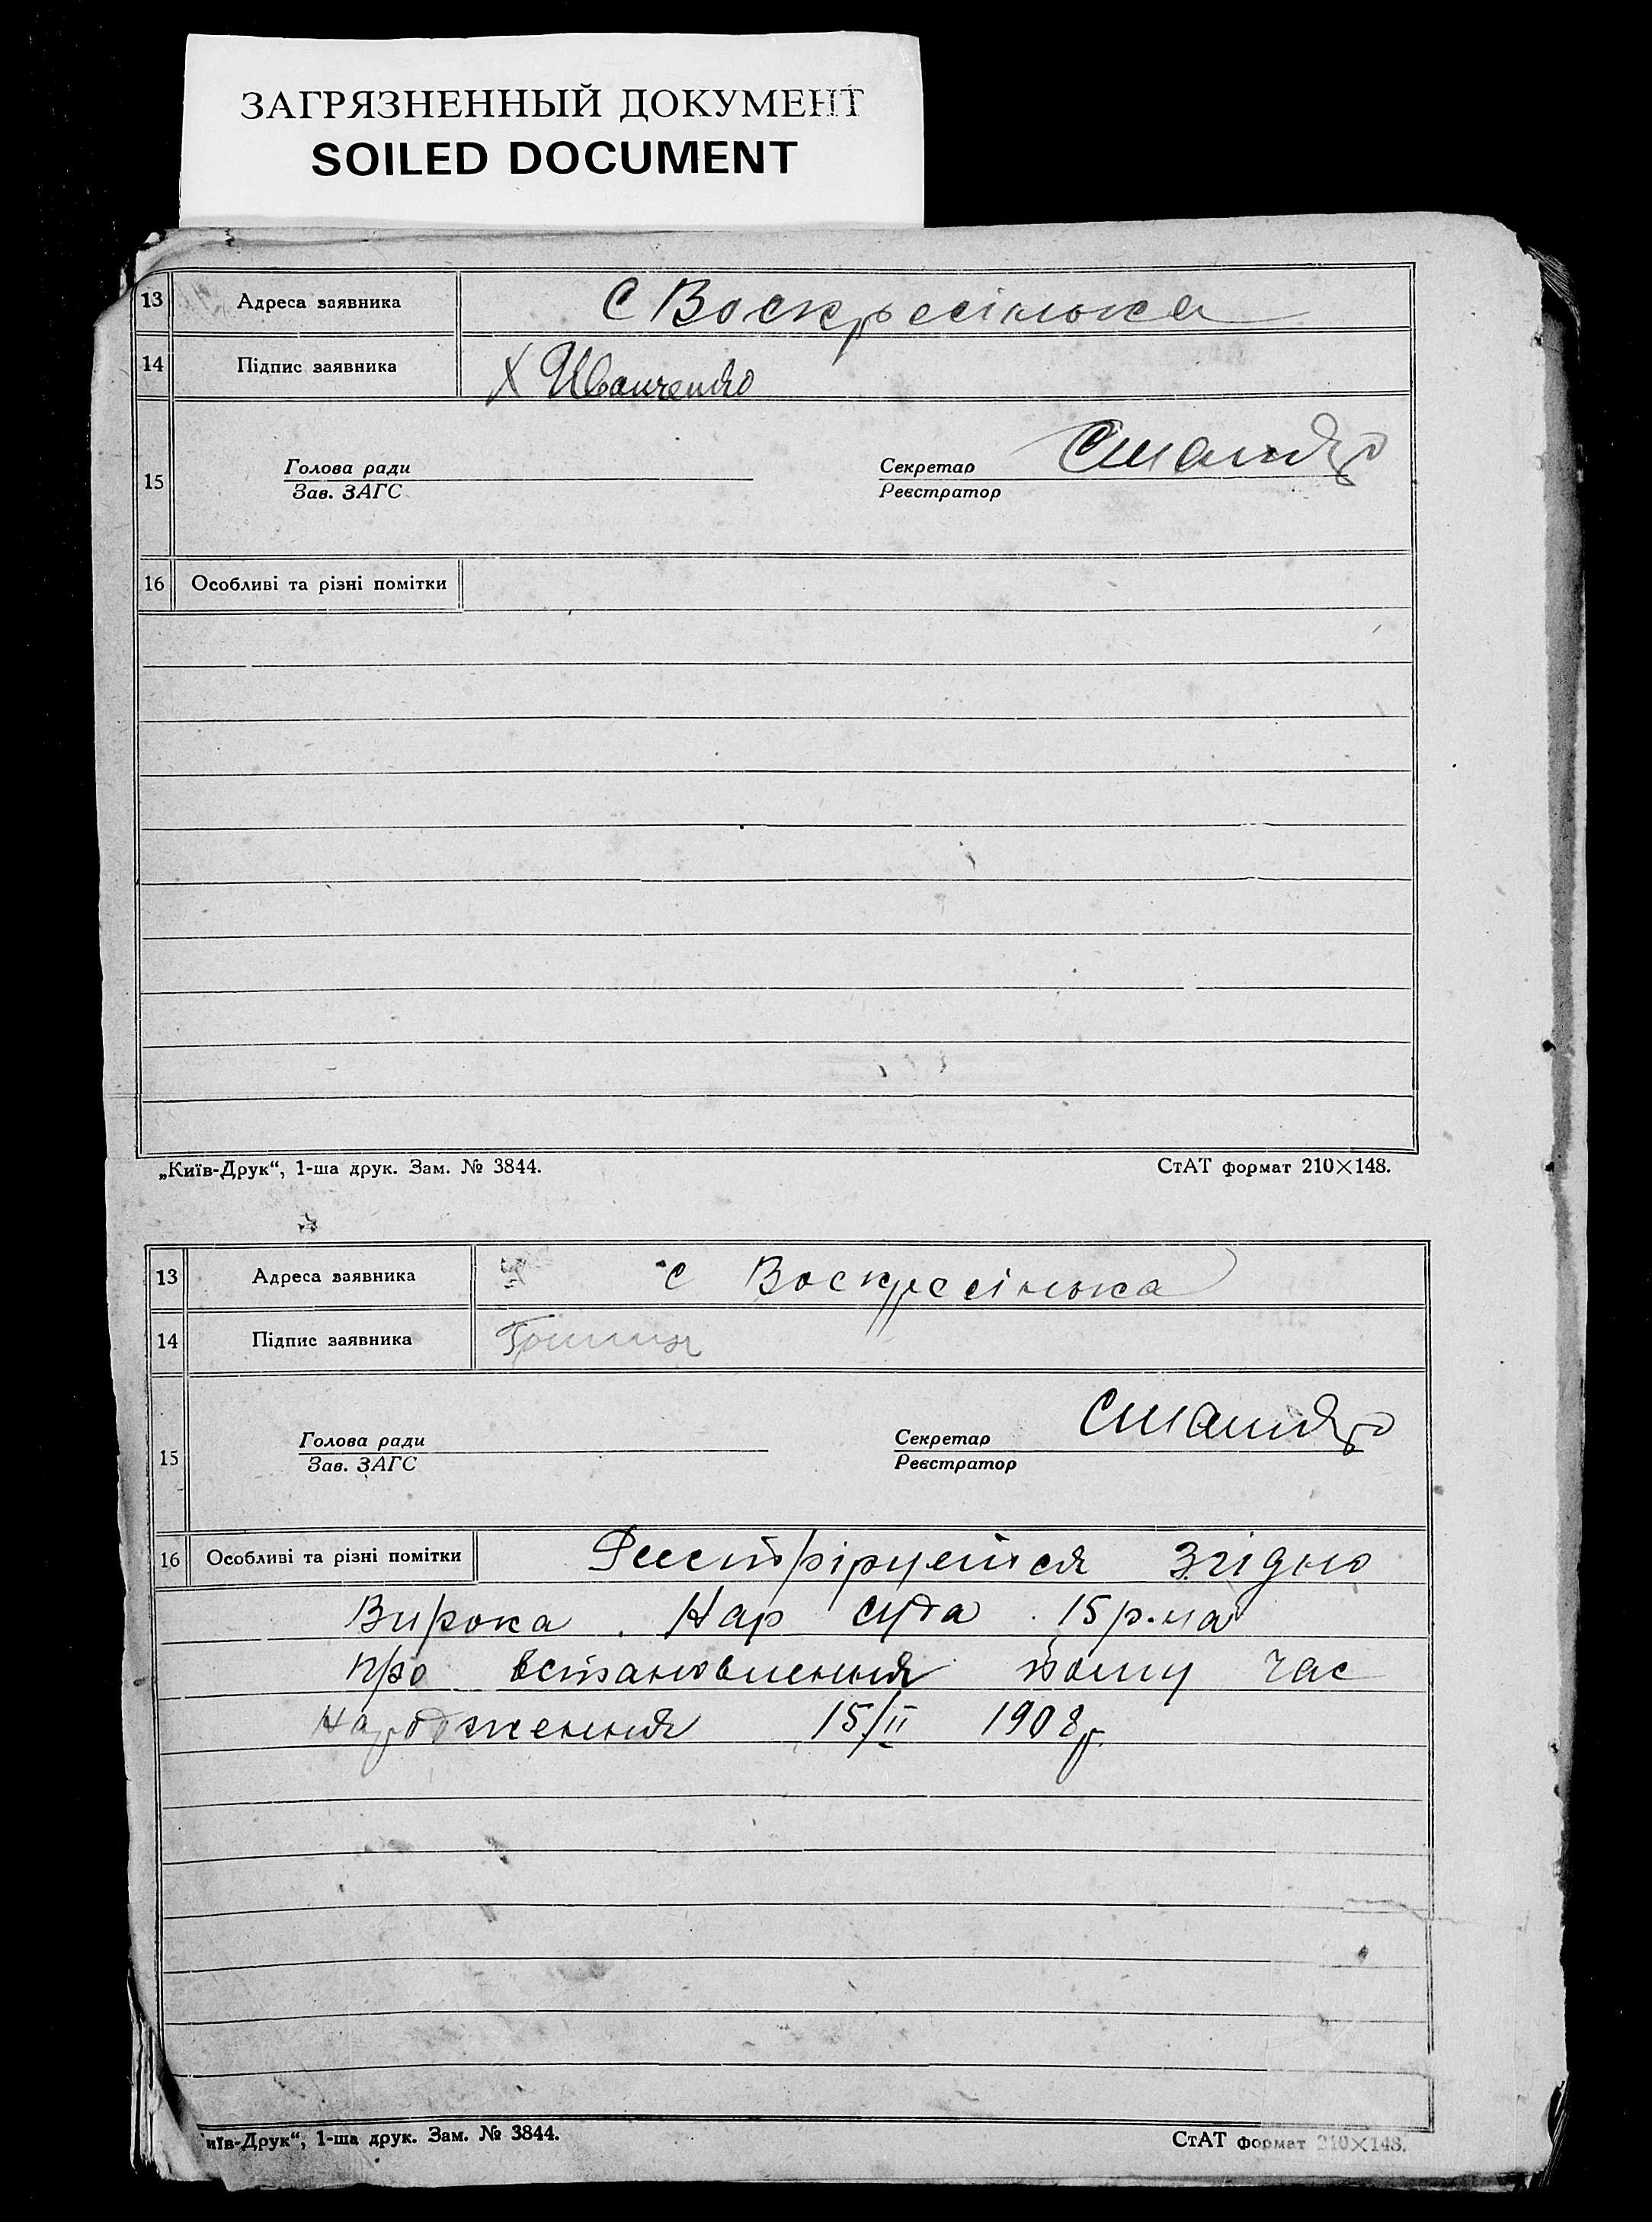 ЗАГРЯЗНЕННЫЙ ДОКУМЕНТ
SOILED DOCUMENT
13 Адреса заявника С Воскресінська
14 Підпис заявника Х Иванченко
15 Голова ради Секретар
Зав. ЗАГС Реєстратор
16 Особливі та різні помітки
„Київ-Друк“, 1-ша друк. Зам. № 3844. СтАТ формат 210×148.
13 Адреса заявника с Воскресінська
14 Підпис заявника
15 Голова ради Секретар
Зав. ЗАГС Реєстратор
16 Особливі та різні помітки Реестріруется згідно
Вирока Нар суда 15 р.
про встановлення час
народження 15/II 1908 р.
иїв-Друк“, 1-ша друк. Зам. № 3844. СтАТ формат 210×148.